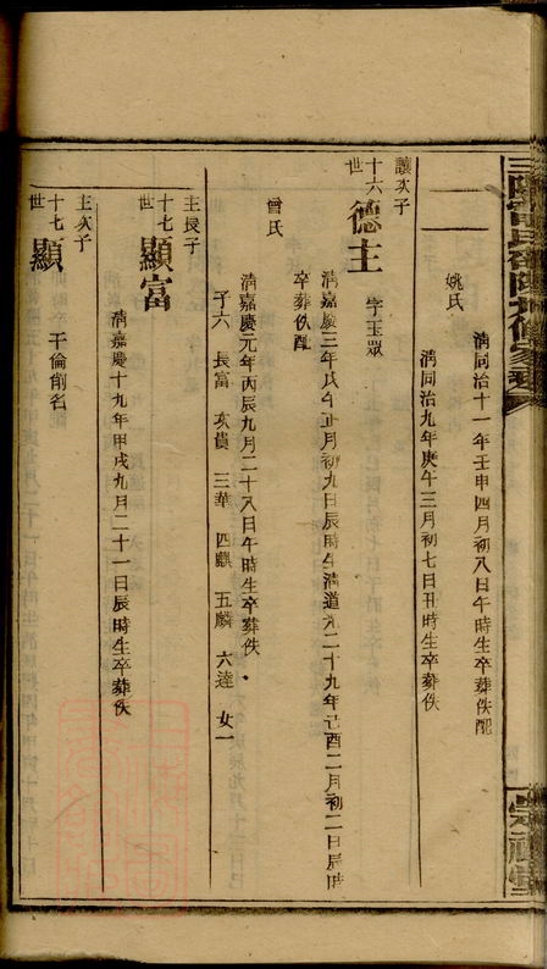 清同治十一年壬申四月初八日午時生卒葬佚配
姚氏
清同治九年庚午三月初七日丑時生卒葬佚
讓次子
十六世
德主 字玉眾
清嘉慶三年戊午正月初九日辰時生清道光二十九年己酉二月初二日辰時
卒葬佚配
曾氏
清嘉慶元年丙辰九月二十八日午時生卒葬佚
子六 長富 次貴 三華 四麒 五麟 六達 女一
主長子
十七世
顯富
清嘉慶十九年甲戌九月二十一日辰時生卒葬佚
主次子
十七世
顯 干倫削名